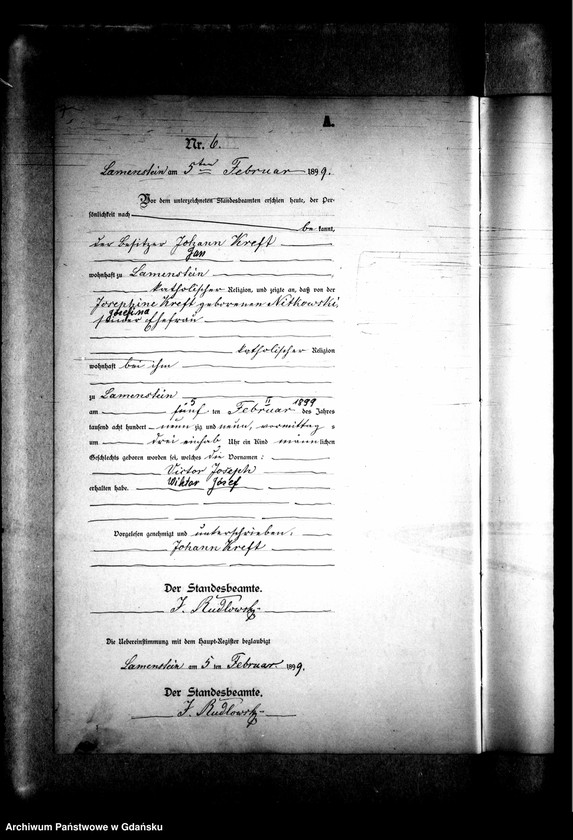 A.
Nr. 6.
Lamenstein am 5ten Februar 1899.
Vor dem unterzeichneten Standesbeamten erschien heute, der Per-
sönlichkeit nach
be kannt,
der Besitzer Johann Kreft
Jan
wohnhaft zu Lamenstein
katholischer Religion, und zeigte an, daß von der
Josephine Kreft geborenen Nitkowski,
Józefina
Ehefrau
katholischer Religion
wohnhaft bei ihm
zu Lamenstein
5 II 1899
am fünf ten Februar des Jahres
tausend acht hundert neun zig und neun, vormittag s
um drei einhalb Uhr ein Kind männlichen
Geschlechts geboren worden sei, welches die Vornamen:
Victor Joseph
Wiktor Józef
erhalten habe.
Vorgelesen genehmigt und unterschrieben.
Johann Kreft
Der Standesbeamte.
J. Rudlowski
Die Uebereinstimmung mit dem Haupt-Register beglaubigt
Lamenstein am 5 ten Februar 1899.
Der Standesbeamte.
J. Rudlowski
Archiwum Państwowe w Gdańsku